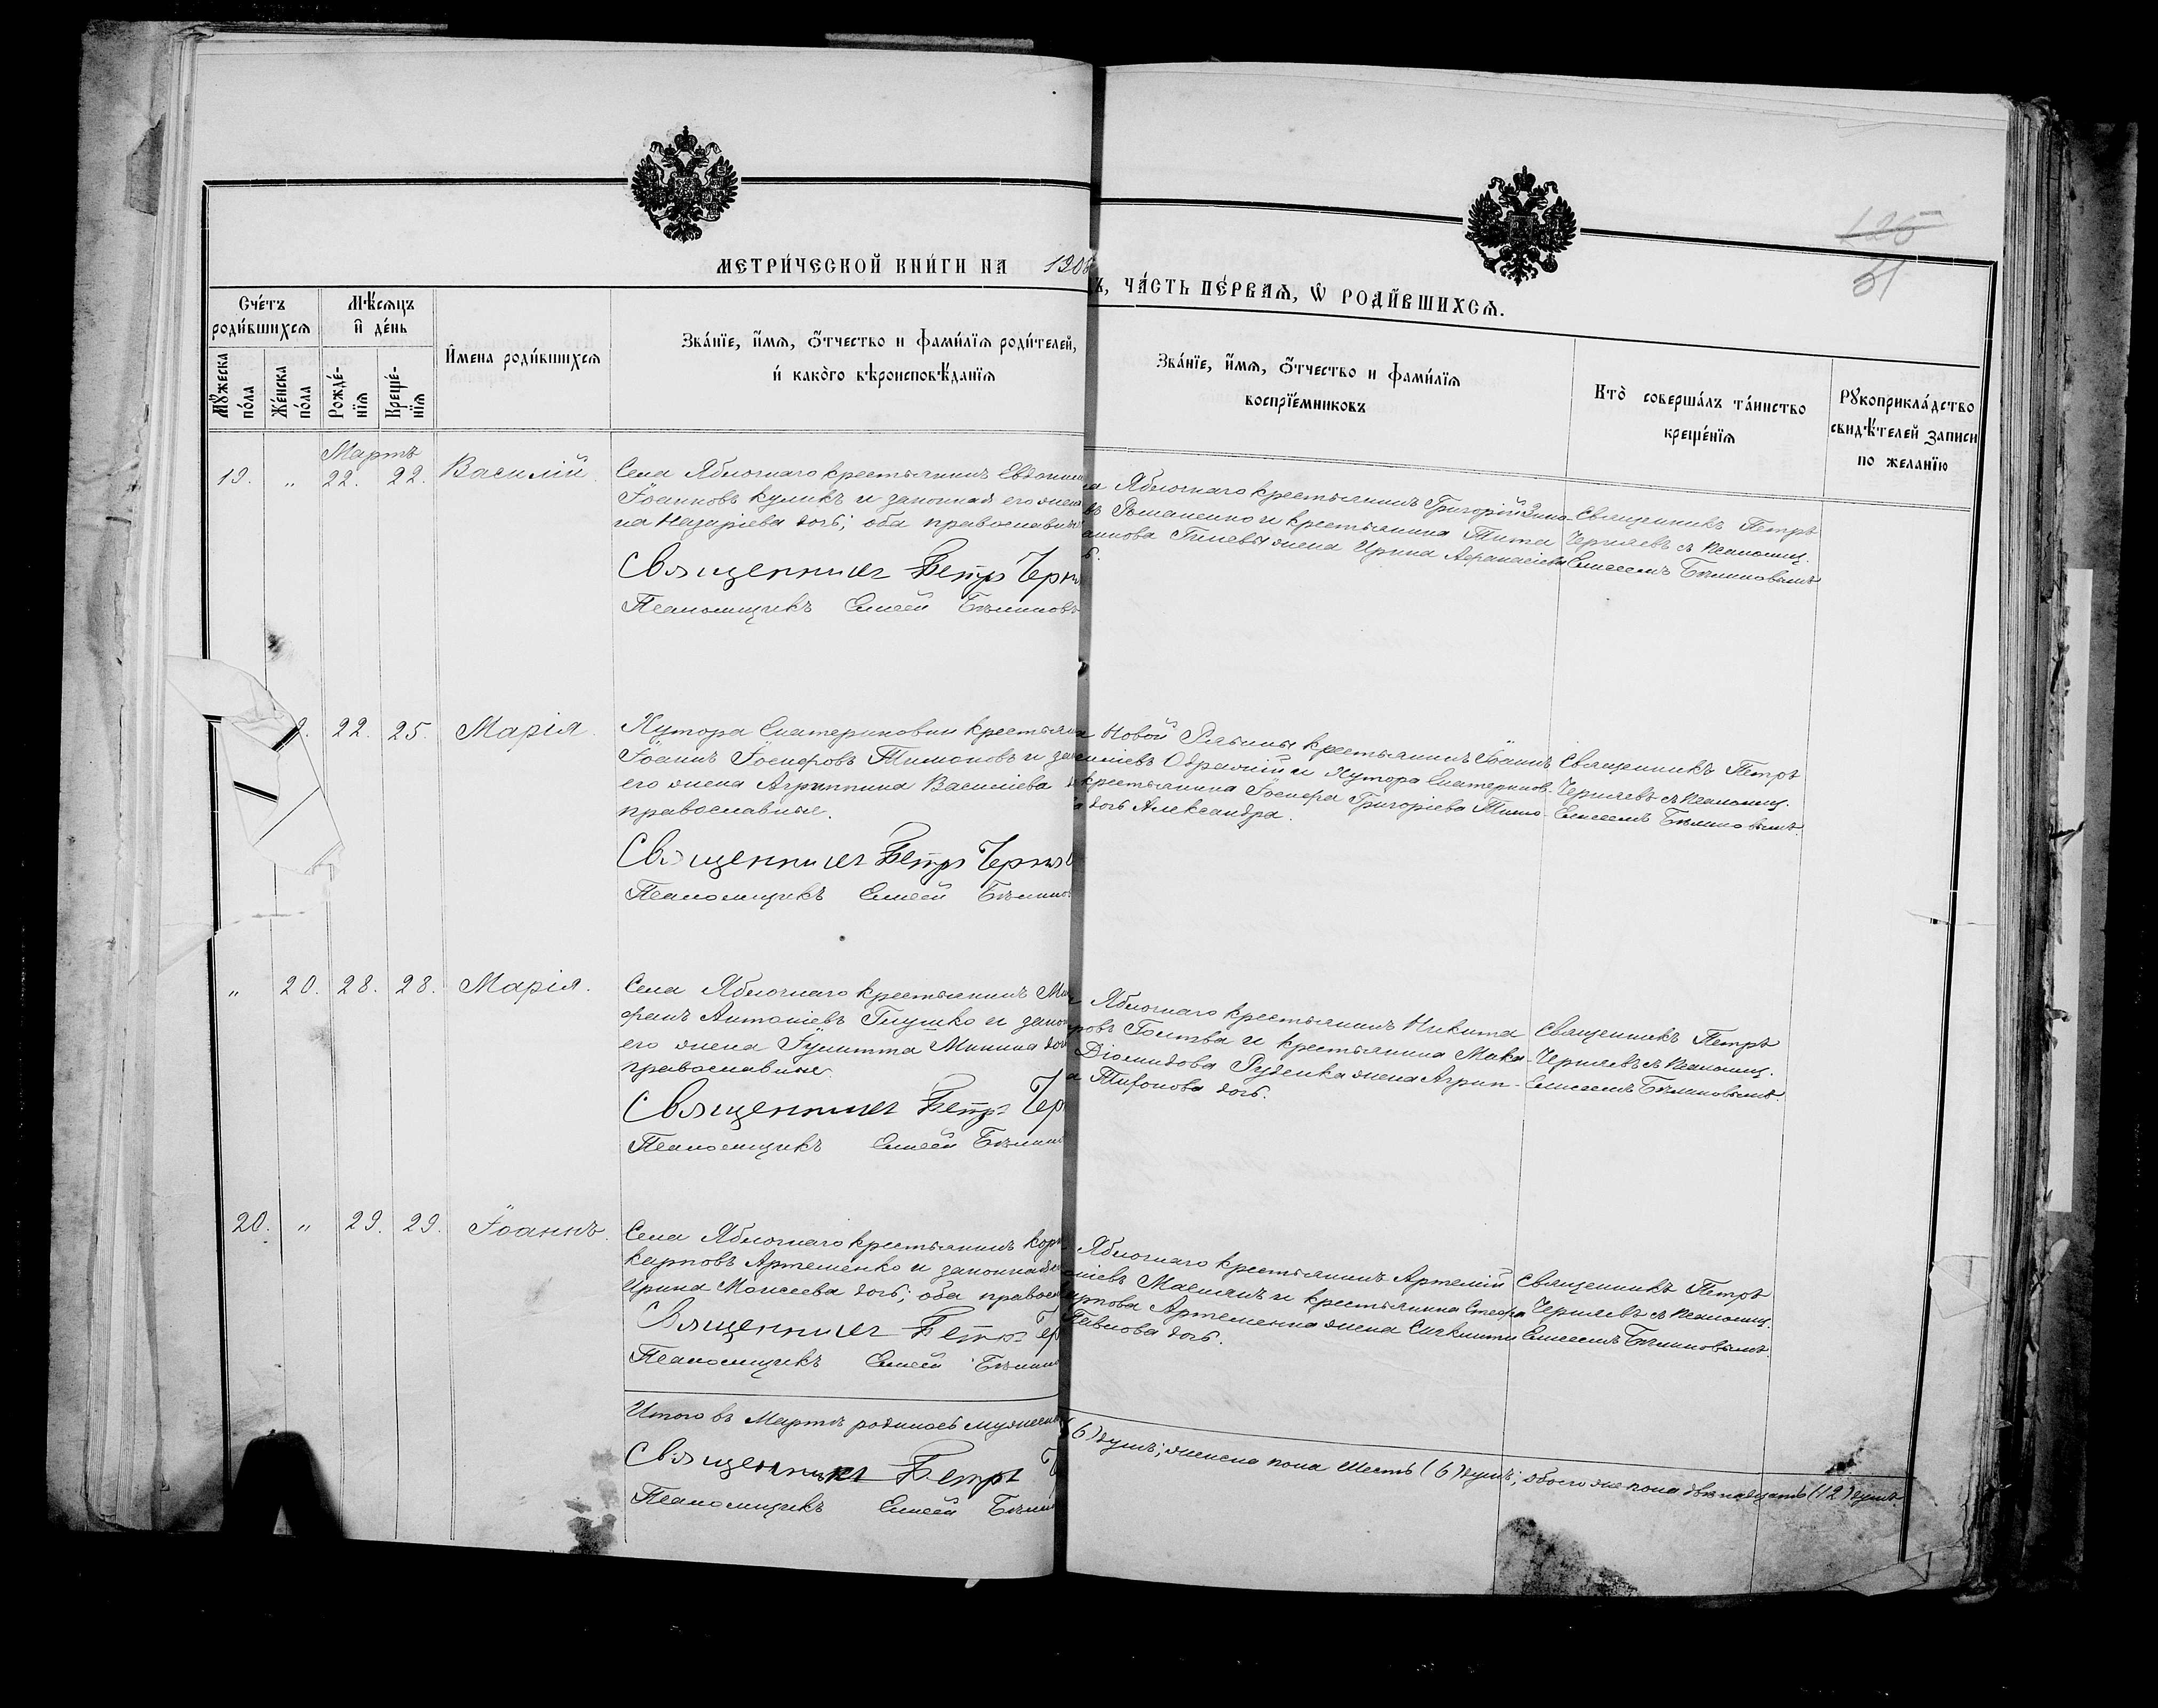 МЕТРИ́ЧЕСКОЙ КНИ́ГИ НА 1908
Ъ, ЧА́СТЬ ПЕ́РВАѦ, Ѡ҆ РОДИ́ВШИХСѦ.
125
51
Сче́тъ роди́вшихсѧ
Мꙋ́жеска по́ла
Же́нска по́ла
Мѣ́сѧцъ и҆ де́нь
Рожде́нїѧ
Креще́нїѧ
И҆мена роди́вшихсѧ
Зва́нїе, и҆́мѧ, ѻ҆́тчество и фами́лїѧ роди́телей,
и҆ како́го вѣроисповѣ́данїѧ
Зва́нїе, и҆́мѧ, ѻ҆́тчество и фами́лїѧ
воспрїе́мниковъ
Кто̀ соверша́лъ та́инство
креще́нїѧ
Рꙋкоприкла́дство
свидѣ́телей записи
по жела́нїю
Мартъ
19. " 22. 22. Василій.
Села Яблочнаго крестьянинъ Евдоким
Іоанновъ Куликъ и законная его жена
на Назаріева дочь; оба православные
Священникъ Петръ Черня
Псаломщикъ Елисей Бѣлиновъ
Яблочнаго крестьянинъ Григорій
въ Романенко и крестьянина Тита
жена Ирина Аѳанасіева
Священникъ Петръ
Черняевъ съ псаломщ.
Елисеемъ Бѣлиновымъ
9. 22. 25. Марія.
Хутора Екатериновки крестьянин
Іоаннъ Іосифовъ Тимоновъ и зак
его жена Агриппина Васильева
православные.
Священникъ Петръ Черняе
Псаломщикъ Елисей Бѣлино
Новой Рябины крестьянинъ Іоаннъ
и Хутора Екатеринов-
крестьянина Іосифа Григоріева Тимо-
а дочь Александра.
Священникъ Петръ
Черняевъ съ псаломщ.
Елисеемъ Бѣлиновымъ.
" 20. 28. 28. Марія.
Села Яблочнаго крестьянинъ Ми
фанъ Антоніевъ Глушко и закон
его жена Іулитта Минина доч
православные.
Священникъ Петръ Чер
Псаломщикъ Елисей Бѣлин
Яблочнаго крестьянинъ Никита
ровъ Гоитва и крестьянина Мака-
Діомидова Руденка жена Агрип-
а Тиѳонова дочь.
Священникъ Петръ
Черняевъ съ псаломщ.
Елисеемъ Бѣлиновымъ.
20. " 29. 29. Іоаннъ.
Села Яблочнаго крестьянинъ Кор
Карповъ Артеменко и законная
Ирина Моисеева дочь; оба правос
Священникъ Петръ Чер
Псаломщикъ Елисей Бѣлин
Яблочнаго крестьянинъ Артемій
и крестьянина Стефа
арпова Артеменка жена
Павлова дочь.
Священникъ Петръ
Черняевъ съ псаломщ.
Елисеемъ Бѣлиновымъ.
Итого въ Мартѣ родилось мужеска
(6) душъ; женска пола шесть (6) душъ; обоего же пола двѣнадцать (12) душъ
Священникъ Петръ Ч
Псаломщикъ Елисей Бѣлин